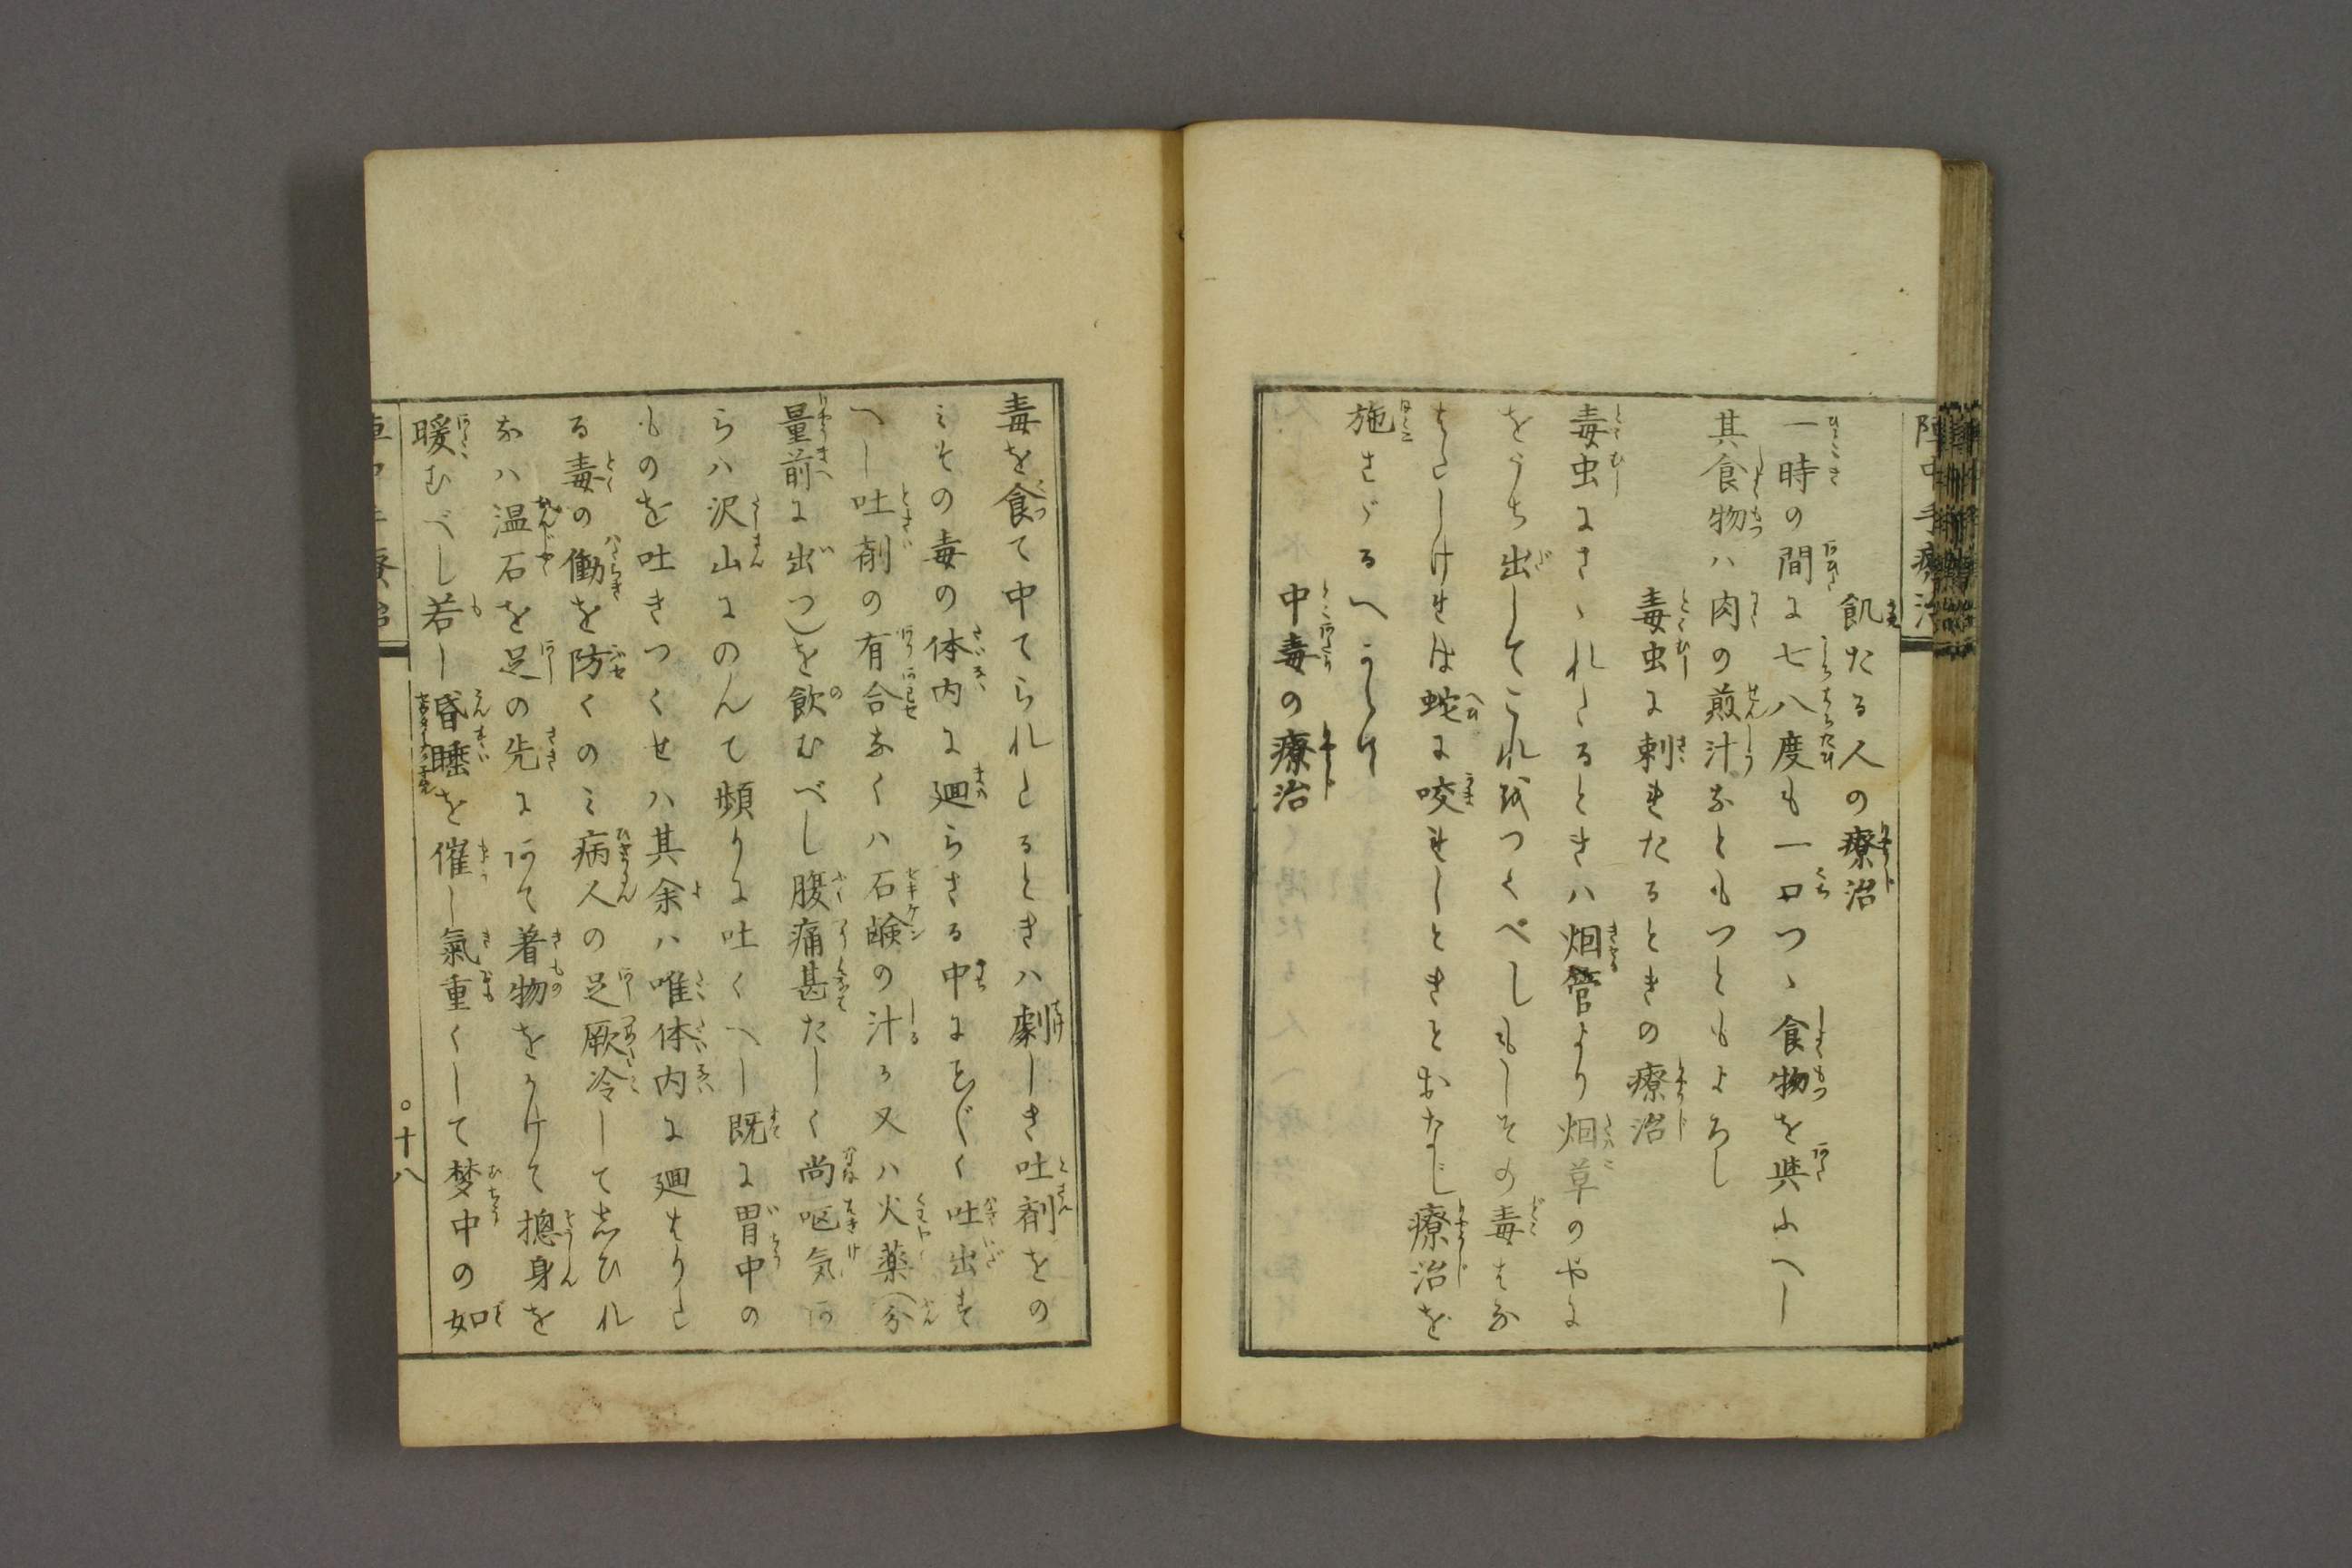 陣中手療治
飢たる人の療治
一時の間に七八度も一口つゝ食物を與ふへし
其食物ハ肉の煎汁なともつともよろし
毒虫に刺れたるときの療治
毒虫にさゝれたるときハ烟管より烟草のやに
をうち出してこれ我つくべしもしその毒はな
はたしけれは蛇に咬れしときとおなじ療治を
施さゞるへからす
中毒の療治
毒を食て中てられたるときハ劇しき吐剤をの
ミその毒の体内に廻らさる中にまづ吐出す
へし吐剤の有合なくハ石鹸の汁か又ハ火薬(分
量前に出つ)を飲むべし腹痛甚たしく尚呕気あ
らハ沢山にのんて頻りに吐くへし既に胃中の
ものを吐きつくせハ其余ハ唯体内に廻はりた
る毒の働を防くのミ病人の足厥冷してしひれ
なハ温石を足の先にあて着物をかけて摠身を
暖むべし若し昏睡を催し氣重くして梦中の如
陣中手療治
○十八